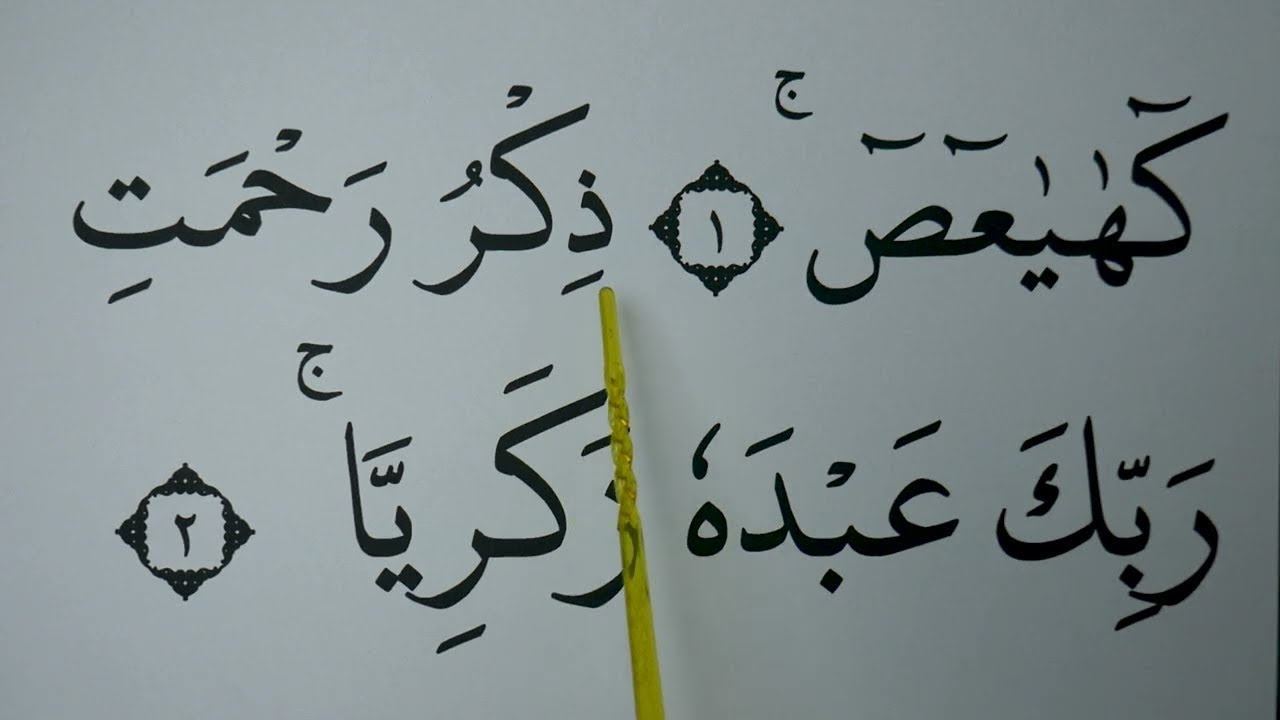 كۤهٰيٰعۤصۤ ۚ ١ ذِكْرُ رَحْمَتِ
رَبِّكَ عَبْدَهٗ زَكَرِيَّا ۚ ٢